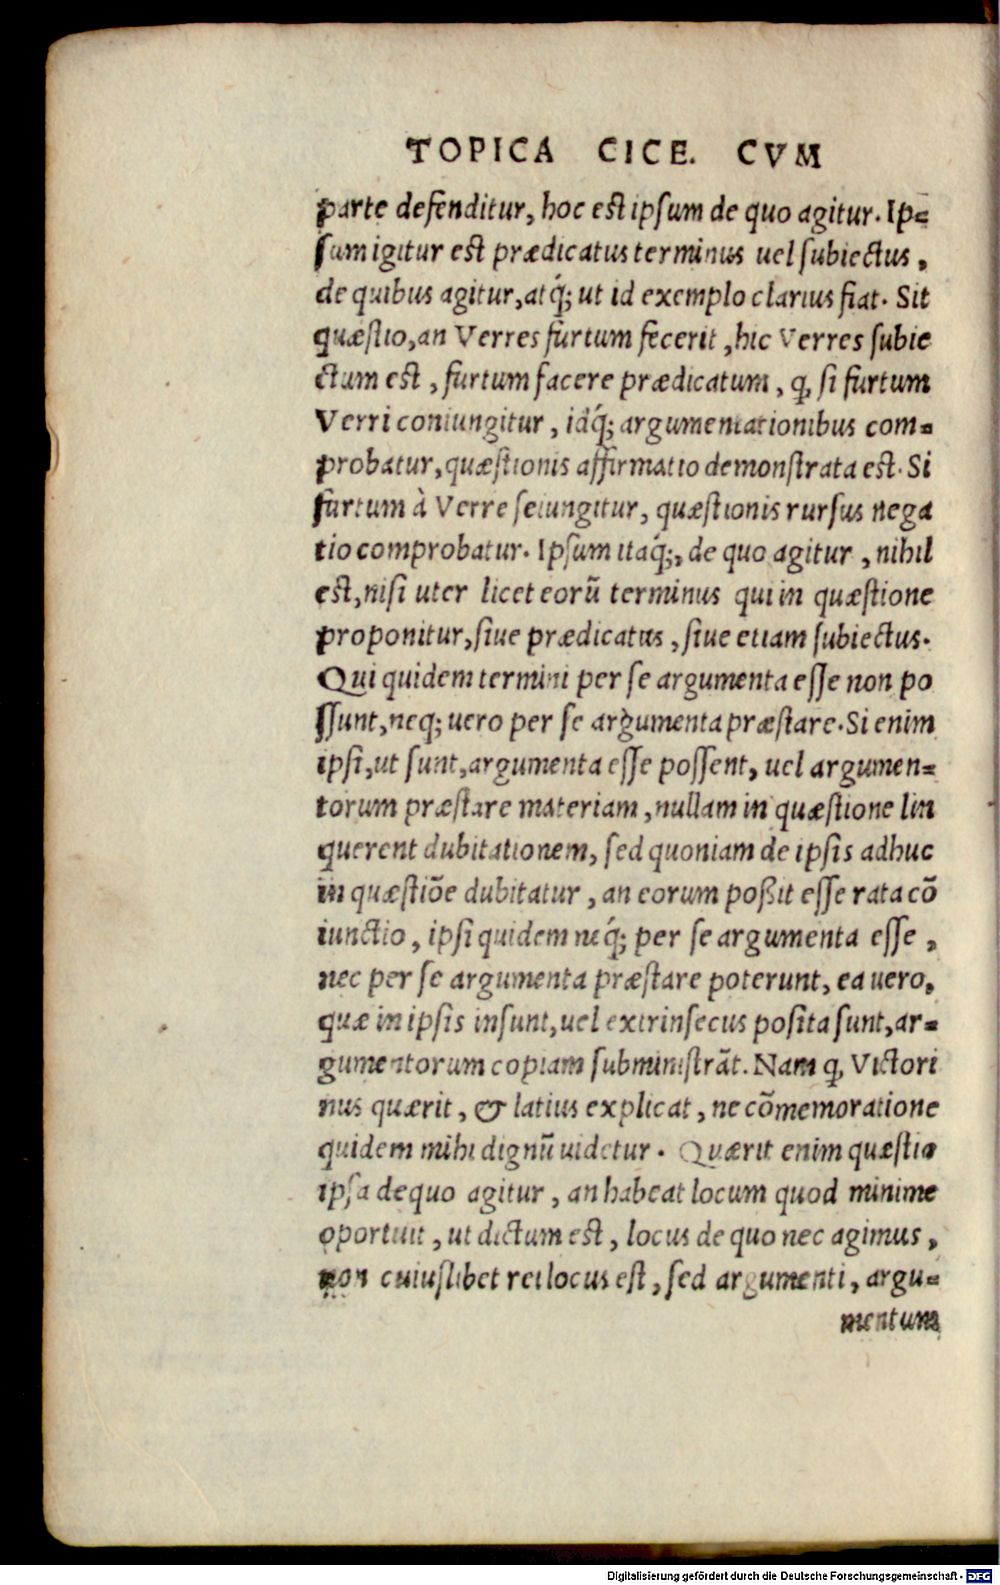 TOPICA CICE. CVM
parte defenditur, hoc est ipsum de quo agitur. Ip=
sum igitur est prædicatus terminus uel subiectus,
de quibus agitur, atq́; ut id exemplo clarius fiat. Sit
quæstio, an Verres furtum fecerit, hic Verres subie
ctum est, furtum facere prædicatum, ꝙ si furtum
Verri coniungitur, idq́; argumentationibus com=
probatur, quæstionis affirmatio demonstrata est. Si
furtum à Verre seiungitur, quæstionis rursus nega
tio comprobatur. Ipsum itaq́;, de quo agitur, nihil
est, nisi uter licet eorũ terminus qui in quæstione
proponitur, siue prædicatus, siue etiam subiectus.
Qui quidem termini per se argumenta esse non po
ssunt, neq; uero per se argumenta præstare. Si enim
ipsi, ut sunt, argumenta esse possent, uel argumen=
torum præstare materiam, nullam in quæstione lin
querent dubitationem, sed quoniam de ipsis adhuc
in quæstiõe dubitatur, an eorum poßit esse rata cõ
iunctio, ipsi quidem neq́; per se argumenta esse,
nec per se argumenta præstare poterunt, ea uero,
quæ in ipsis insunt, uel extrinsecus posita sunt, ar=
gumentorum copiam subministrãt. Nam ꝙ Victori
nus quærit, & latius explicat, ne cõmemoratione
quidem mihi dignũ uidetur. Quærit enim quæstio
ipsa de quo agitur, an habeat locum quod minime
oportuit, ut dictum est, locus de quo nec agimus,
non cuiuslibet rei locus est, sed argumenti, argu=
mentum
Digitalisierung gefördert durch die Deutsche Forschungsgemeinschaft - DFG